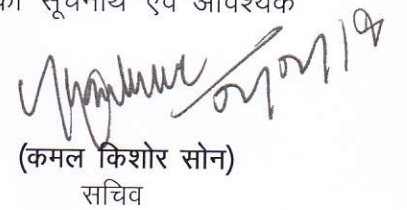 को सूचनार्थ एवं आवश्यक
(कमल किशोर सोन)
सचिव